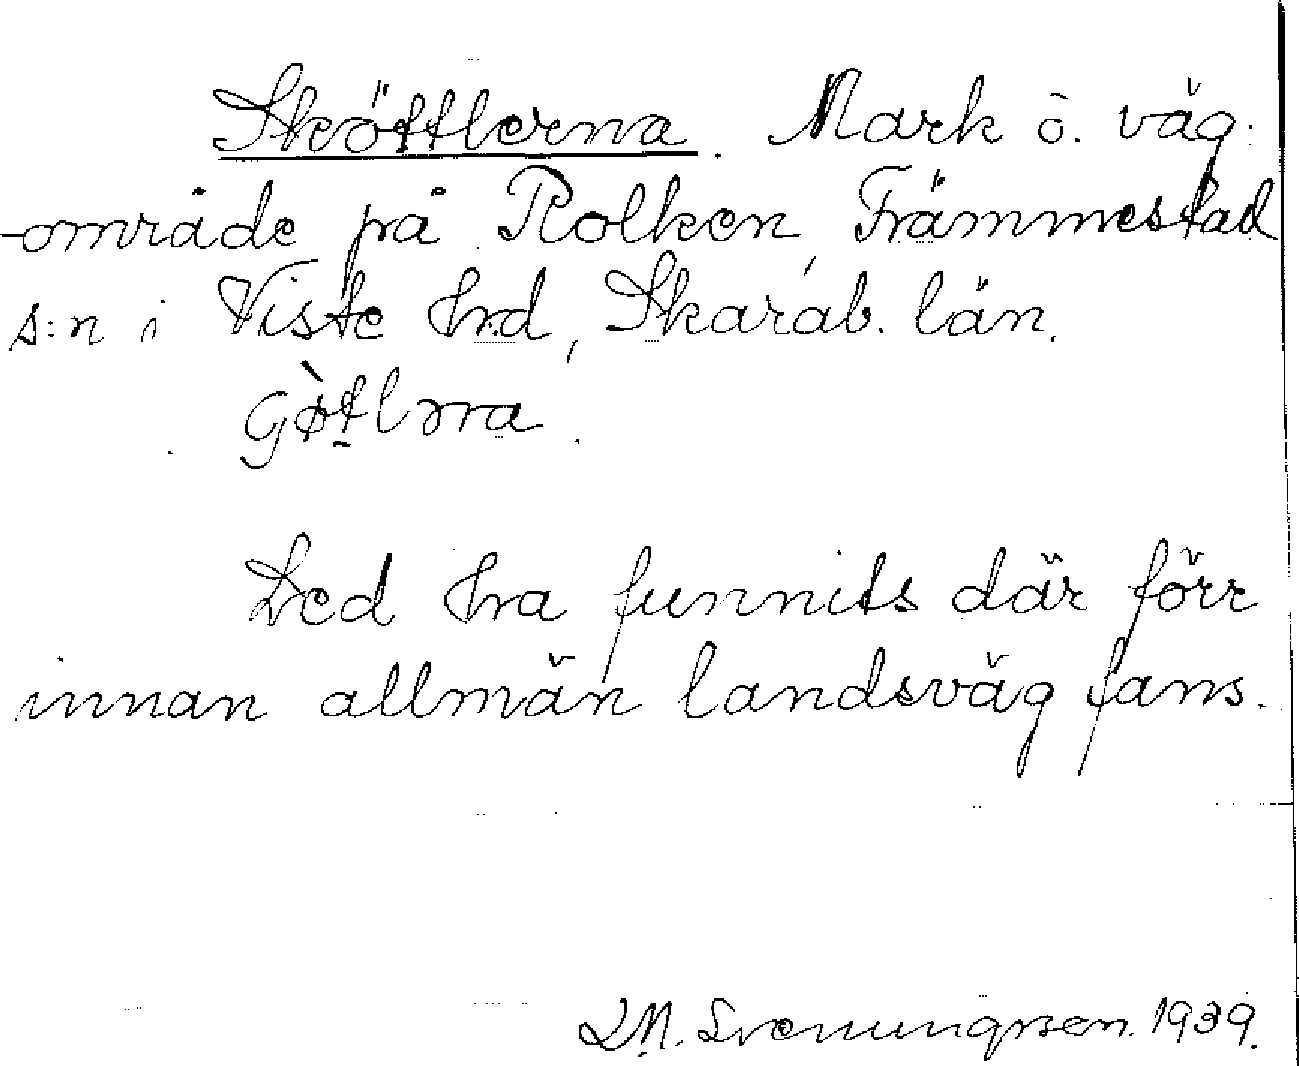 Sköttlerna. Mark ö. väg-
område på Rolken, Främmestad
s:n i Viste hrd, Skarab. län.
Led ha funnits där förr
innan allmän landsväg fans.
L.M. Svenungsson. 1939.